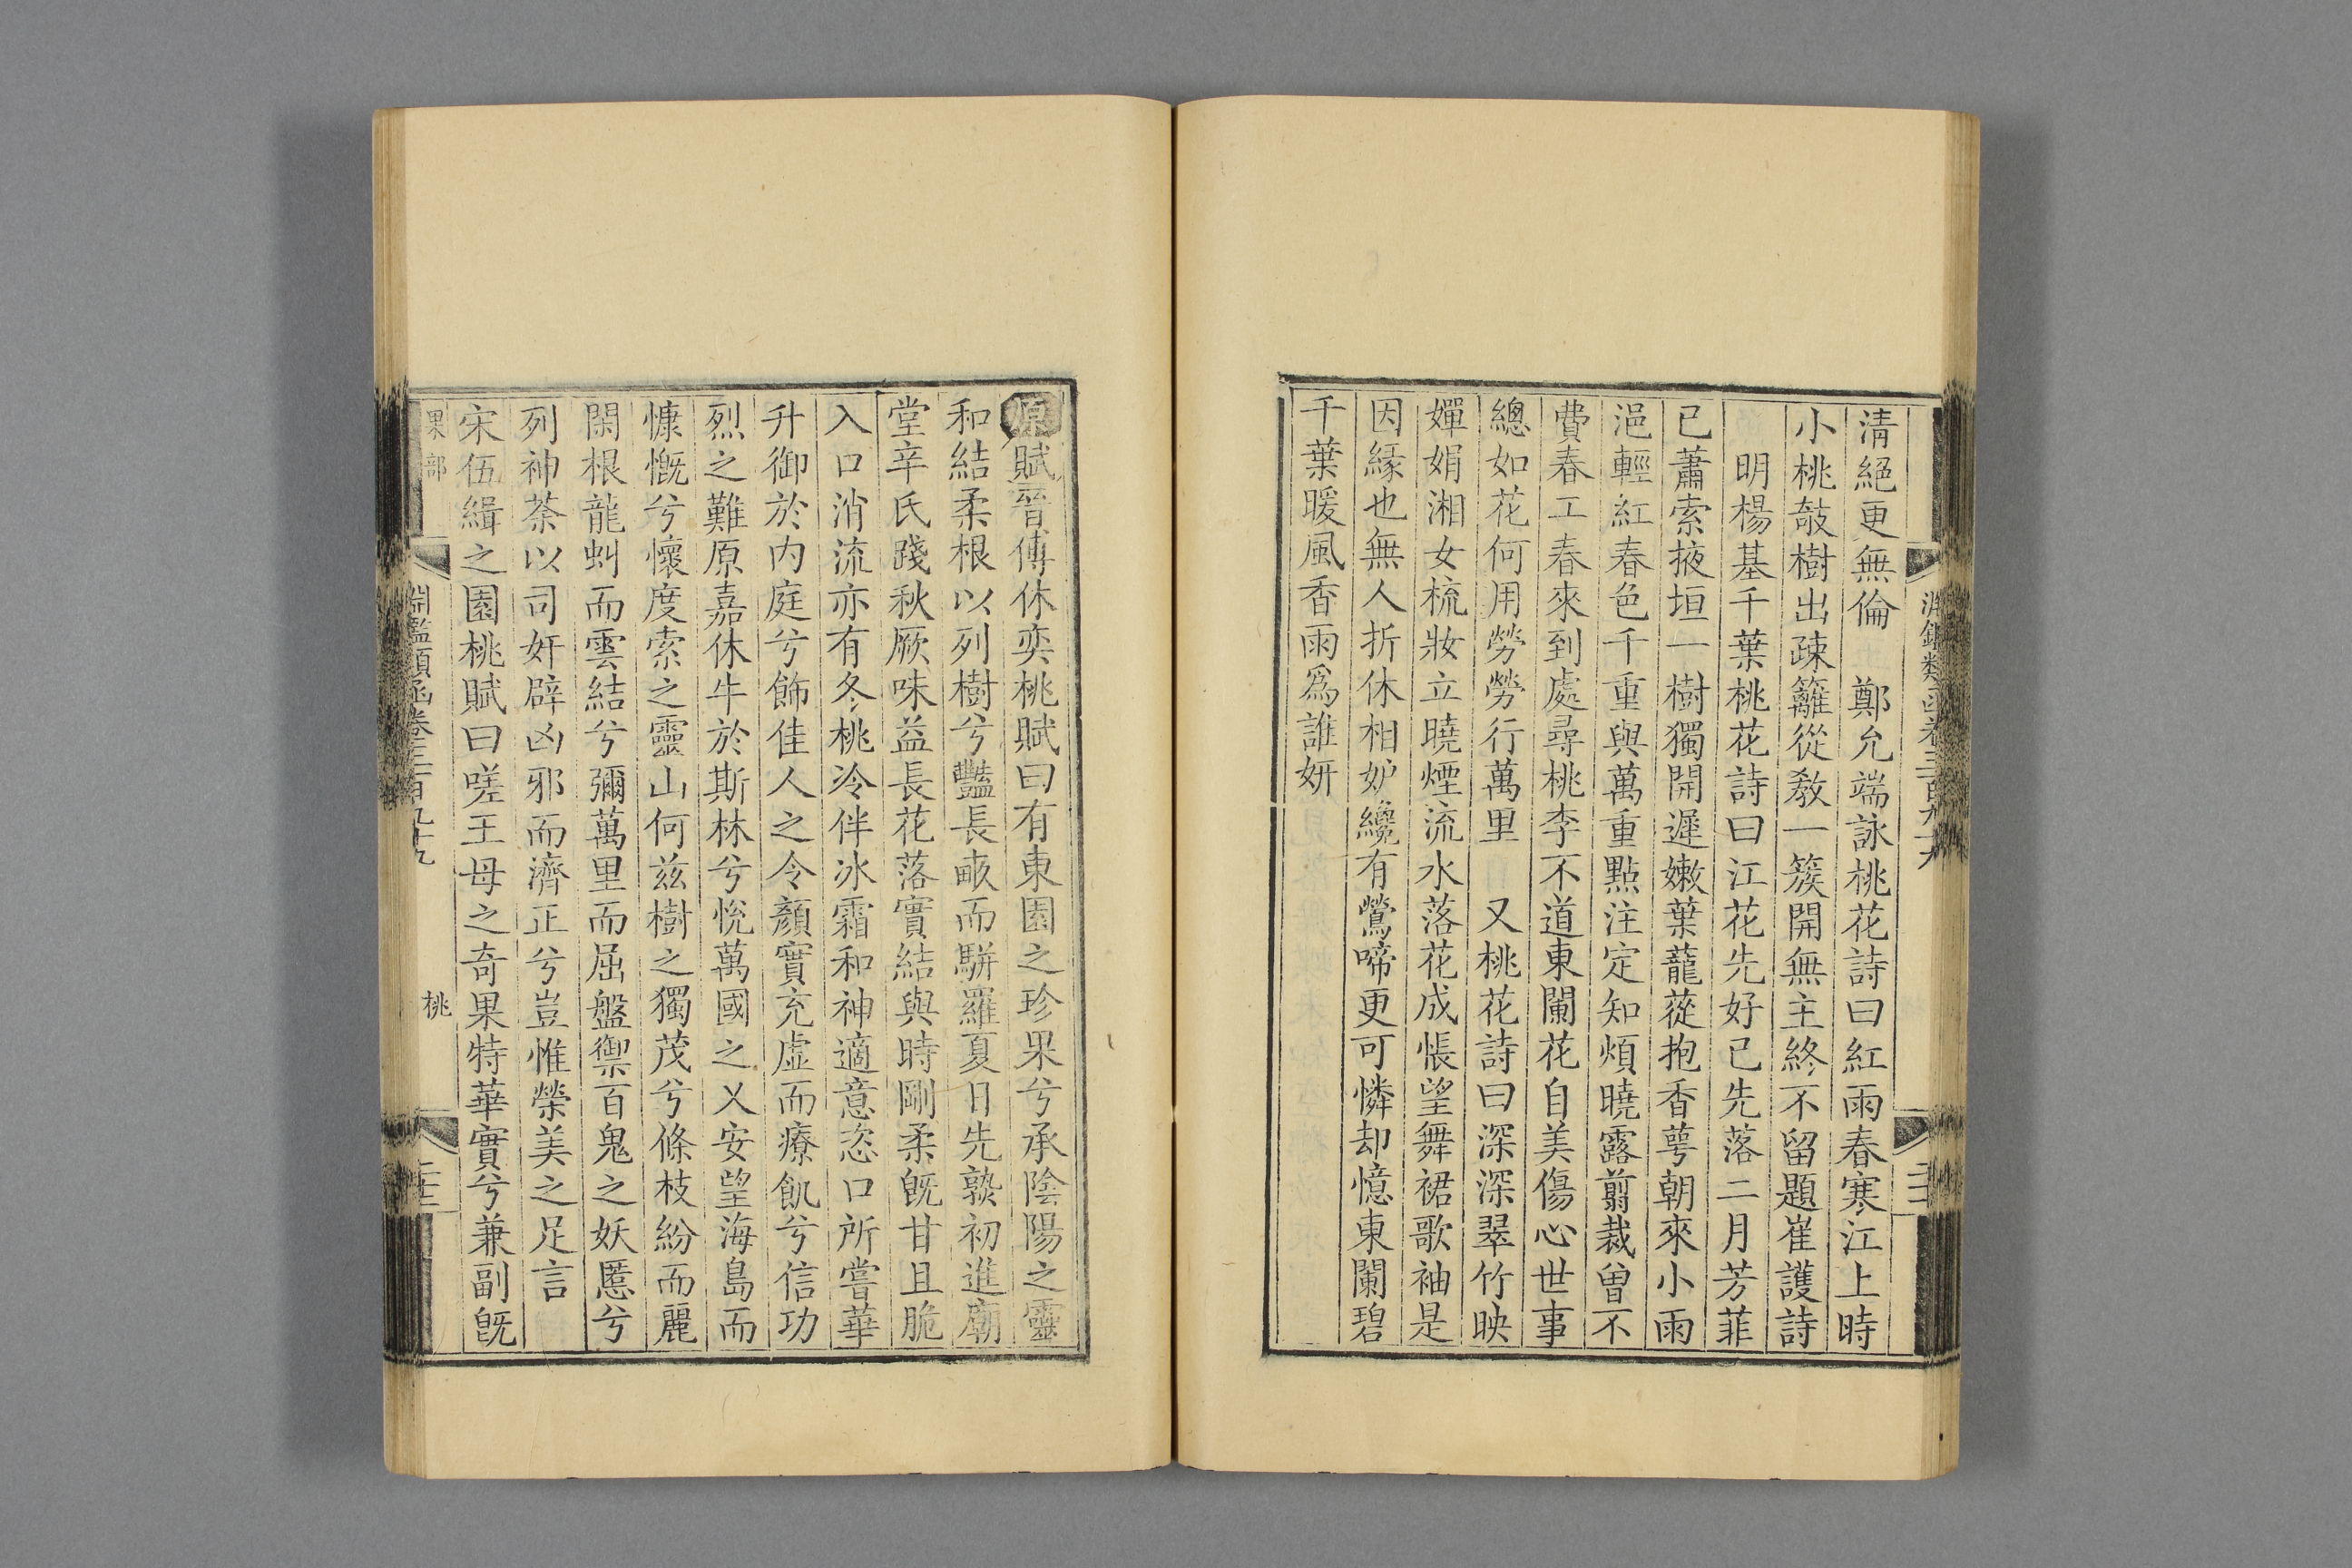 清絕更無倫　鄭允端詠桃花詩曰紅雨春寒江上時
小桃攲樹出疎籬從教一簇開無主終不留題崔護詩
明楊基千葉桃花詩曰江花先好已先落二月芳菲
已蕭索掖垣一樹獨開遲嫩葉蘢蓯抱香萼朝來小雨
浥輕紅春色千重與萬重點注定知煩曉露翦裁曾不
費春工春來到處尋桃李不道東闌花自美傷心世事
總如花何用勞勞行萬里　又桃花詩曰深深翠竹映
嬋娟湘女梳妝立曉煙流水落花成悵望舞裙歌袖是
因緣也無人折休相妒纔有鶯啼更可憐却憶東闌碧
千葉暖風香雨爲誰妍
原賦晉傅休奕桃賦曰有東園之珍果兮承陰陽之靈
和結柔根以列樹兮豔長畝而駢羅夏日先熟初進廟
堂辛氏踐秋厥味益長花落實結與時剛柔旣甘且脆
入口消流亦有冬桃冷侔冰霜和神適意恣口所嘗華
升御於内庭兮飾佳人之令顏實充虛而療飢兮信功
烈之難原嘉休牛於斯林兮悅萬國之乂安望海島而
慷慨兮懷度索之靈山何兹樹之獨茂兮條枝紛而麗
閑根龍虯而雲結兮彌萬里而屈盤禦百鬼之妖慝兮
列神荼以司奸辟凶邪而濟正兮豈惟榮美之足言
宋伍緝之園桃賦曰嗟王母之奇果特華實兮兼副旣
果部
淵鑑類函卷三百九十九
桃